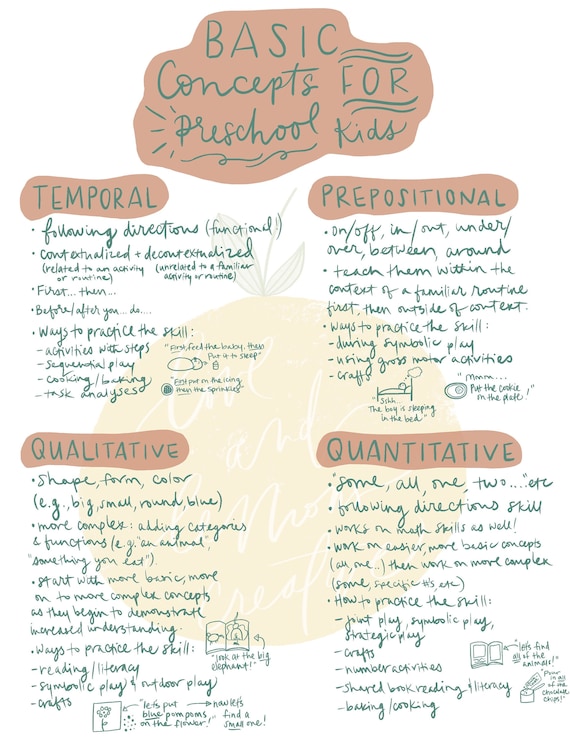 BASIC
Concepts FOR
Preschool Kids
TEMPORAL
• following directions (functional!)
• contextualized + decontextualized
(related to an activity or routine) (unrelated to a familiar activity or routine)
• First... then...
• Before/after you... do....
• Ways to practice the skill:
- activities with steps
- Sequential play
- cooking/baking
- task analyses
"First, feed the baby, then
Put it to sleep"
"First put on the icing,
then the sprinkles"
PREPOSITIONAL
• on/off, in/out, under/
over, between, around
• teach them within the
context of a familiar routine
first, then outside of context.
• Ways to practice the skill:
- during symbolic play
- using gross motor activities
- crafts
"Shh...
The boy is sleeping
in the bed"
"mmm...
Put the cookie
on the plate!"
QUALITATIVE
• Shape, form, color
(e.g., big, small, round, blue)
• more complex: adding categories
& functions (e.g. "an animal,"
"something you eat").
• start with more basic, more
on to more complex concepts
as they begin to demonstrate
increased understanding.
• Ways to practice the skill:
- reading/literacy
- symbolic play & outdoor play
- crafts
"look at the big
elephant!"
"let's put
blue pompoms
on the flower!"
now let's
find a
small one!"
QUANTITATIVE
• "some, all, one, two...."etc
• following directions skill
• works on math skills as well!
• work on easier, more basic concepts
(all, one..) then work on more complex
(some, specific #'s, etc)
• How to practice the skill:
- joint play, symbolic play,
strategic play
- crafts
- number activities
- shared book reading & literacy
- baking/cooking
"let's find
all of the
animals!"
"Pour
in all
of the
chocolate
chips!"
and